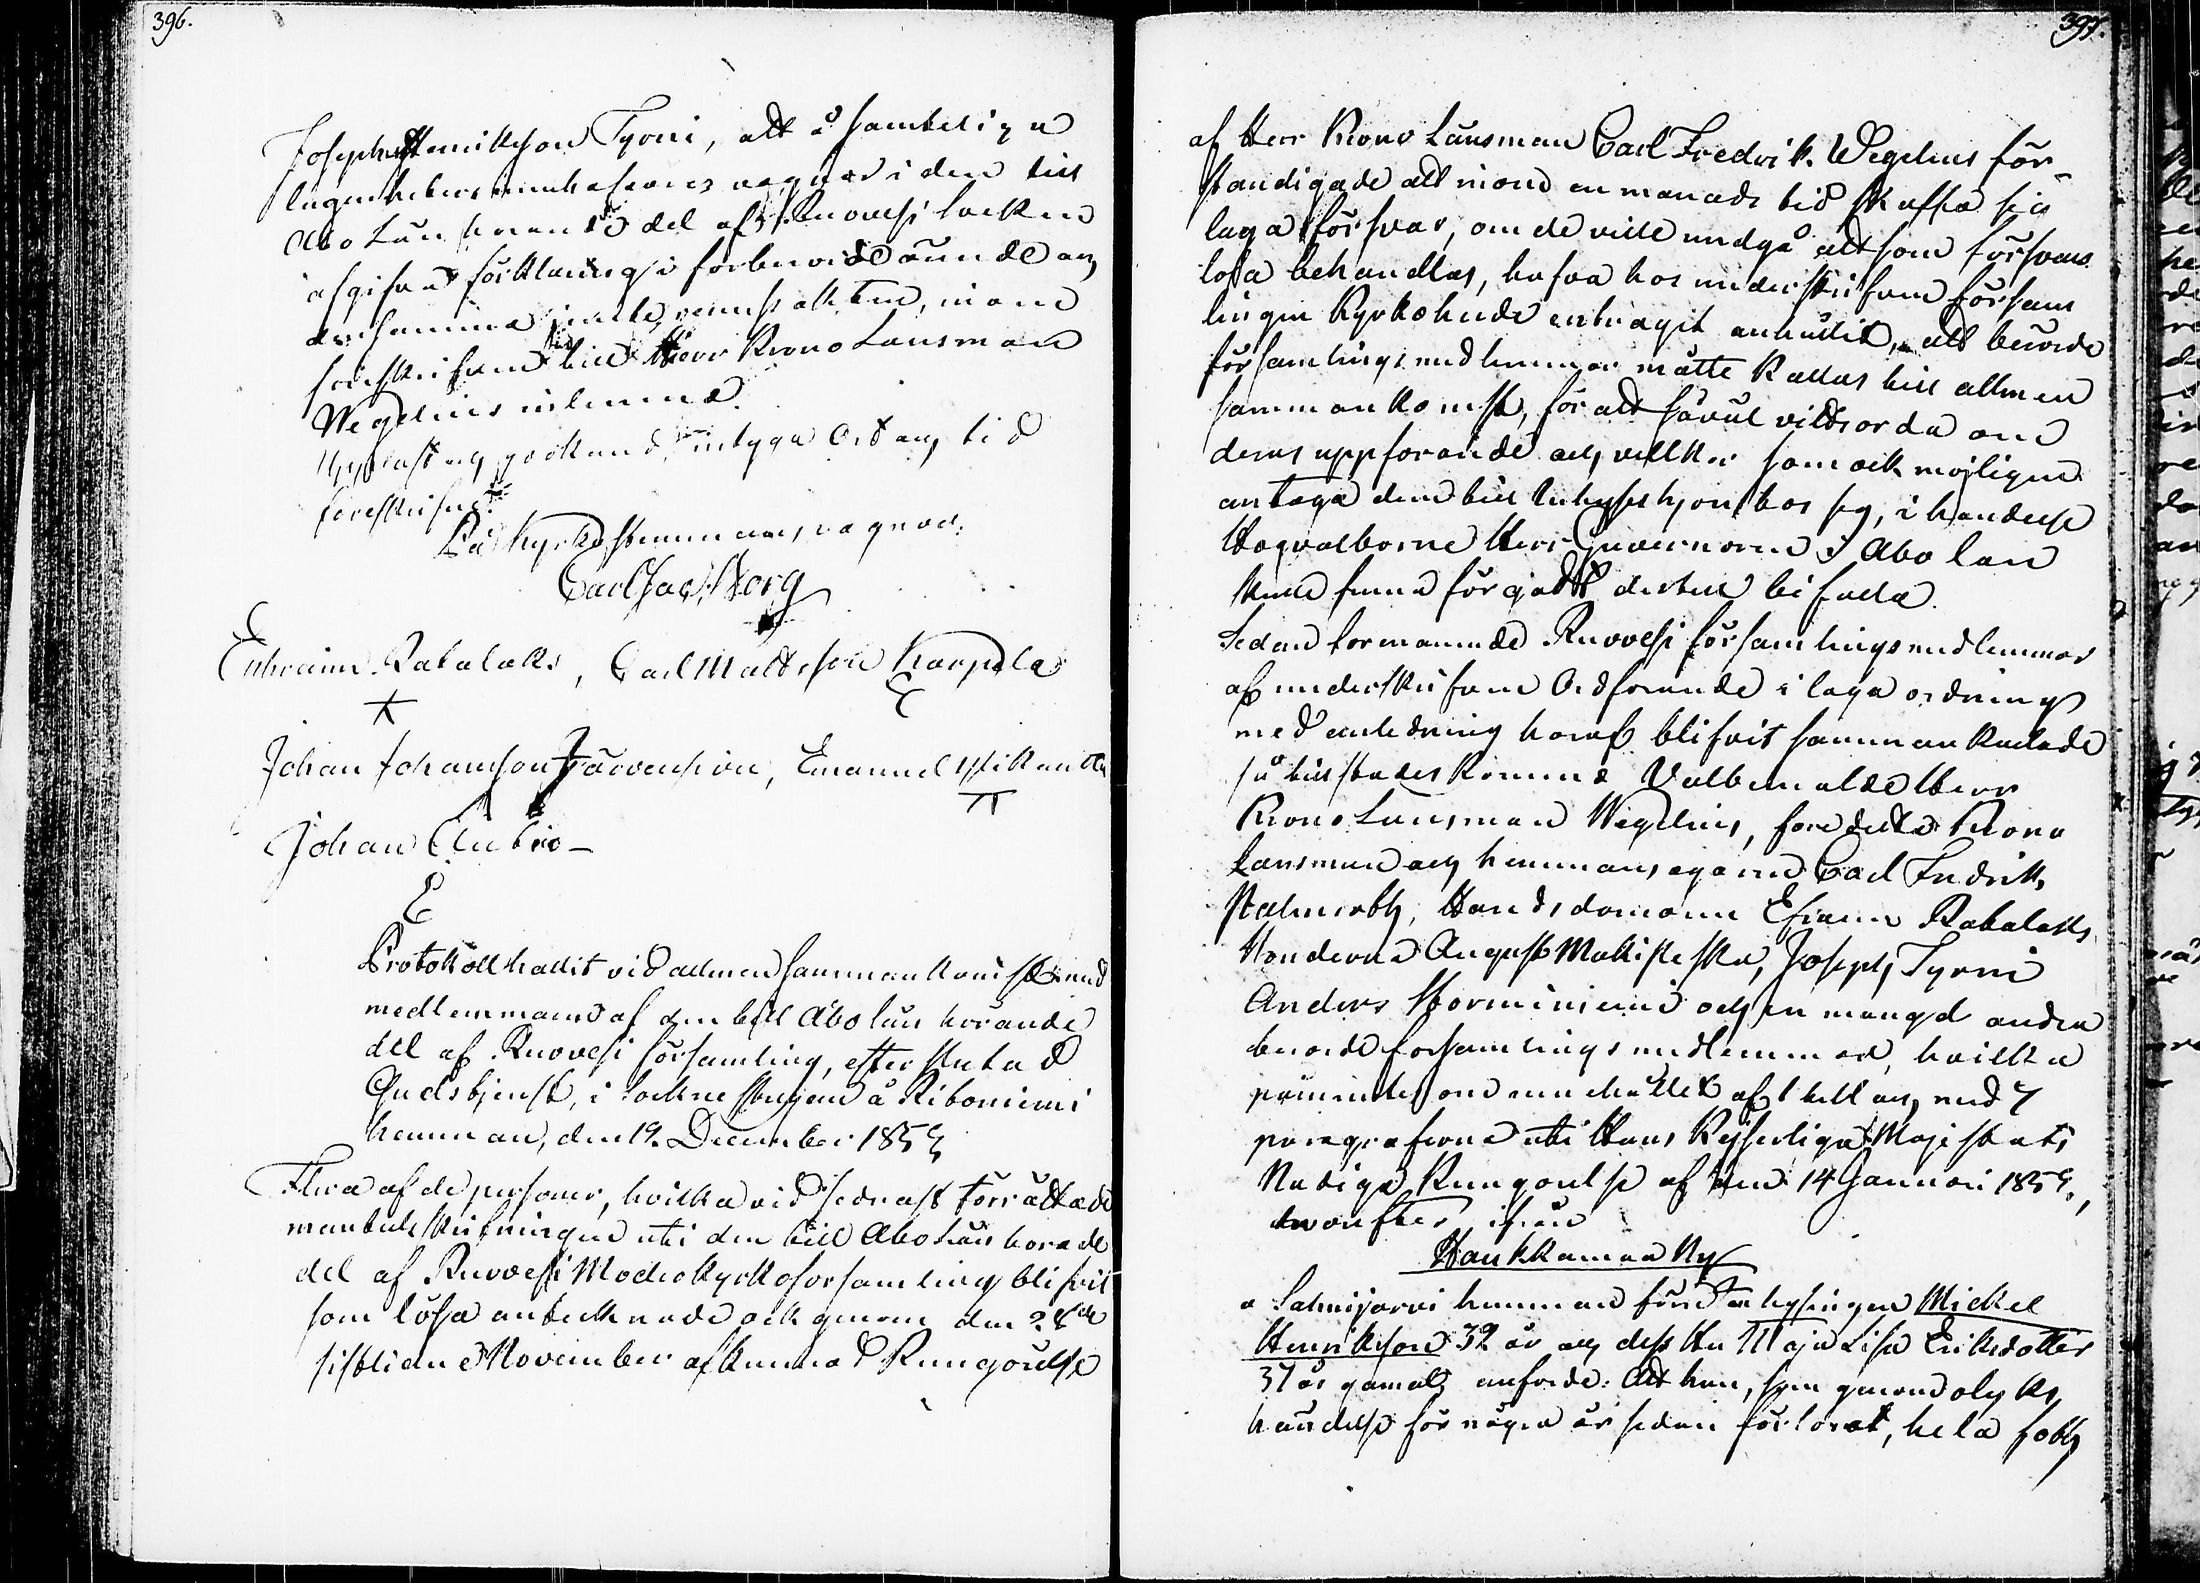 396.
Joseph Henriksson Tyrni, att å samtelige
lägenhetersinnehafvares vagnar i den till
Åbo Län hörande del af Ruovesi socken
afgifva förklaring i forberörde ämne och
densamma jemte remissakten, inom
föreskrifven tid till Herr Krono Länsman
Wegelius inlemna.
Uppläst och godkändt, intyga Ort och tid
föreskrifne.
På Kyrkostemmans vagnar.
Carl Jac. Borg
Ephraim Ratalaks, Carl Mattsson Karpela
Johan Johansson Järvensivu, Emanuel
Johan Anttio
Protokoll hållit vid allmen sammankomst med
medlemmarne af den till Åbo län hörande
del af Ruovesi församling, efter slutad
Gudstjenst, i Sockne stugan å Ritoniemi
hemman, den 19. December 1859
Flera af de personer, hvilka vid sednast förrättade
mantalsskrifningen uti den till Åbo Län horande
del af Ruovesi Moderkyrkoforsamling blifvit
som lösa antecknade och genom den 28de
sistliden November afkunnad Kungörelse
397.
af Herr Krono Länsman Carl Fredrik Wegelius för-
standigade att inom en månads tid skaffa sig
laga försvar, om de ville undgå att som försvars
lösa behandlas, hafva hos underskrifven försam
lingens Kyrkoherde entraget anhållit, att berörde
församlings medlemmar måtte kallas till allmen
sammankomst, för att såväl vittsorda om
deras uppforande och villkor som ock möjligen
antaga dem till Inhyseshjon hos sig, i handelse
Högvälborne Herr Guvernoren i Åbo län
skulle finna för godt dertill bifalla.
Sedan formanande Ruovesi församlingsmedlemmar
af underskrifven Ordförande i laga ordning
med anledning häraf blifvit sammankallade
så tillstädes kommo Välbemälde Herr
Krono Länsman Wegelius, foredette Krono
Länsman och hemmansegaren Carl Fredrik
Malmroth, Häradsdomaren Efraim Ratalaks
Bönderne August Mäkiskeska, Joseph Tyrni
Anders Storminiemi och en mangd andra
berörde forsamlingsmedlemmar, hvilka
påmintes om innehållet af 1 till och med 7
paragraferne uti Hans Kejserliga Majestäts
Nådiga Kungörelse af den 14 Januari 1859,
hvarefter, ifrån
Haukkamaa By
a Salmijärvi hemman förre Inhysingen Mickel
Henriksson 32 år och dess Hu Maja Lisa Eriksdotter
37 år gamal, anforde: Att han, som genom olycks
händelse för några år sedan förlorat, hela foth